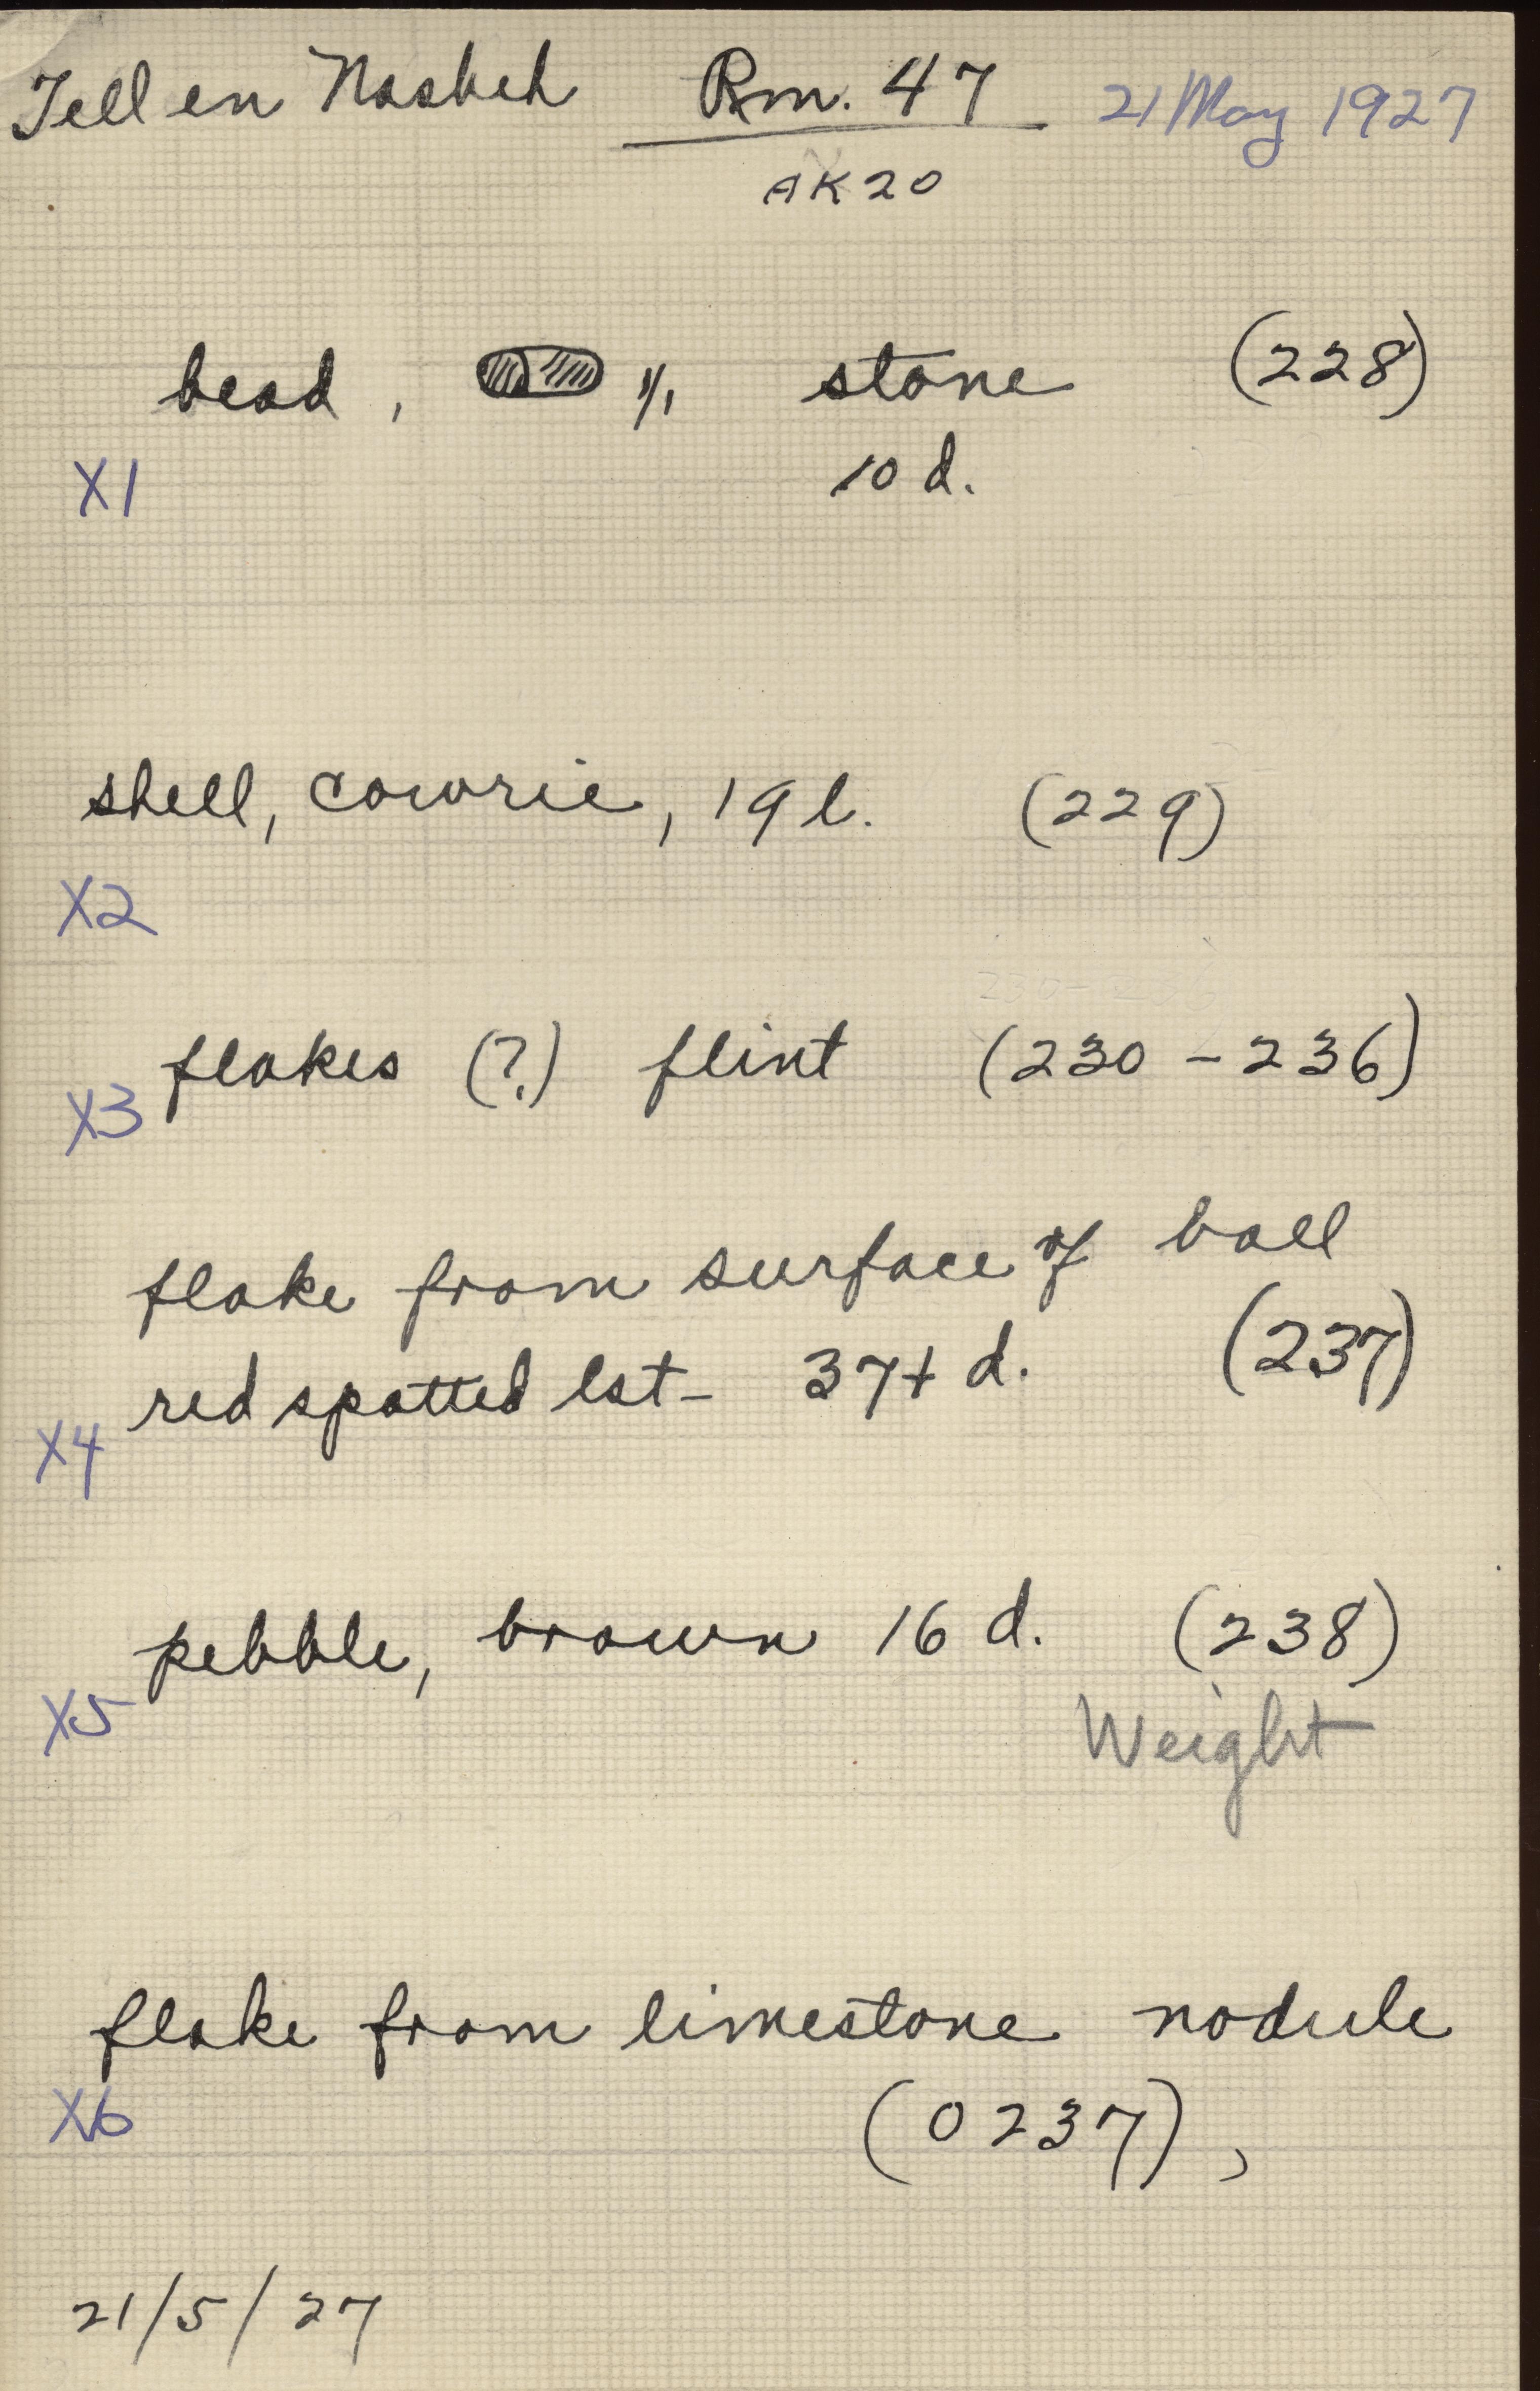 Tell en Nasbeh Rm. 47 21 May 1927
AK20
bead, 1/1 stone (228)
10 d.
X1
shell, cowrie, 19 l. (229)
X2
flakes (?) flint (230 - 236)
X3
flake from surface of ball
red spotted lst- 37+ d. (237)
X4
pebble, brown 16 d. (238)
X5
Weight
flake from limestone nodule
X6 (0237),
21/5/27